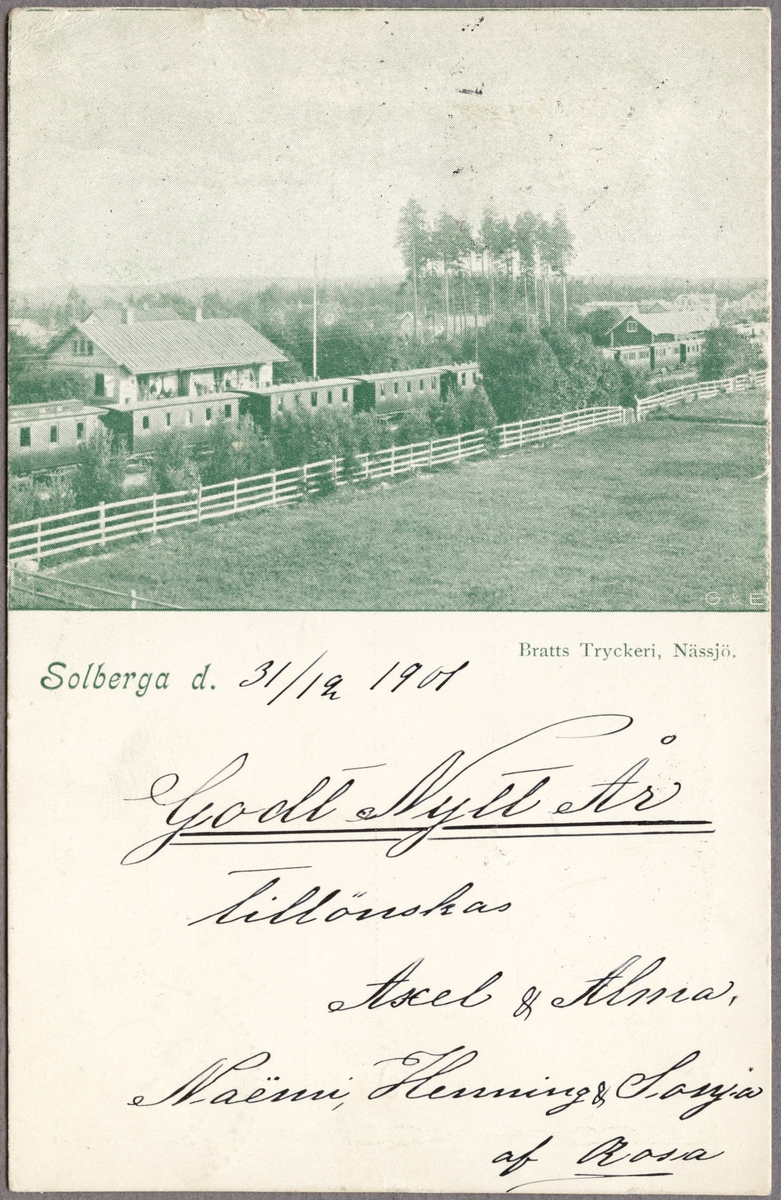 G & E
Bratts Tryckeri, Nässjö.
Solberga d. 31/12 1901
Godt Nytt År
tillönskas
Axel & Alma,
Naëmi, Henning & Sonja
af Rosa